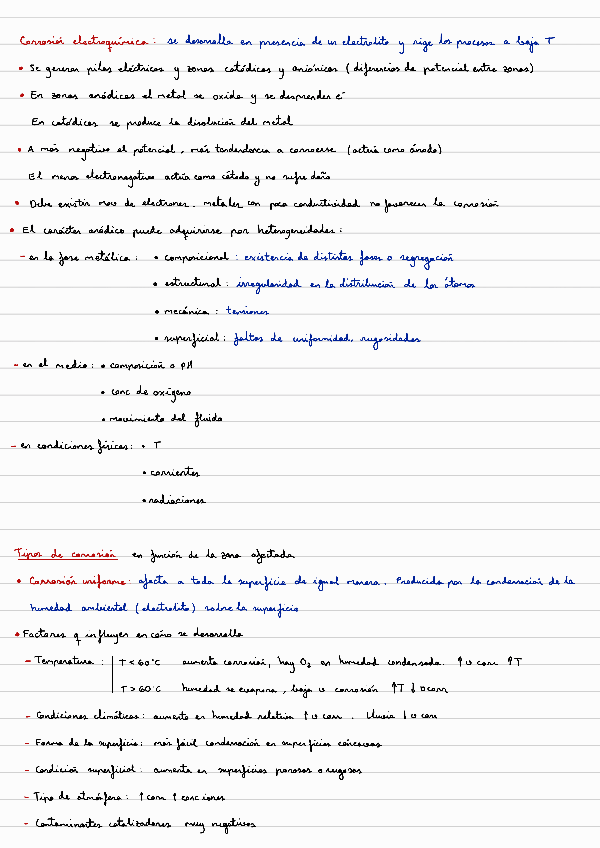 Corrosión electroquímica: se desarrolla en presencia de un electrolito y rige los procesos a baja T
• Se generan pilas eléctricas y zonas catódicas y aniónicas (diferencias de potencial entre zonas)
• En zonas anódicas el metal se oxida y se desprenden e⁻
En catódicas se produce la disolución del metal
• A más negativo el potencial, más tendendencia a corroerse (actúa como ánodo)
El menos electronegativo actúa como cátodo y no sufre daño
• Debe existir mov de electrones. metales con poca conductividad no favorecen la corrosión
• El carácter anódico puede adquirirse por heterogeneidades:
- en la fase metálica: • composicional: existencia de distintas fases o segregación
• estructural: irregularidad en la distribución de los átomos
• mecánica: tensiones
• superficial: faltas de uniformidad, rugosidades
- en el medio: • composición o PH
• conc de oxígeno
• movimiento del fluido
- en condiciones físicas: • T
• corrientes
• radiaciones
Tipos de corrosión en función de la zona afectada
• Corrosión uniforme: afecta a toda la superficie de igual manera. Producida por la condensación de la
humedad ambiental (electrolito) sobre la superficie
• Factores q influyen en cómo se desarrolla
- Temperatura: T < 60°C aumenta corrosión, hay O₂ en humedad condensada. ↑ v corr ↑T
T > 60°C humedad se evapora, baja v corrosión ↑T ↓ v corr
- Condiciones climáticas: aumenta en humedad relativa ↑ v corr. Lluvia ↓ v corr
- Forma de la superficie: más fácil condensación en superficies cóncavas
- Condición superficial: aumenta en superficies porosas o rugosas
- Tipo de atmósfera: ↑ corr ↑ conc iones
- Contaminantes catalizadores muy negativos